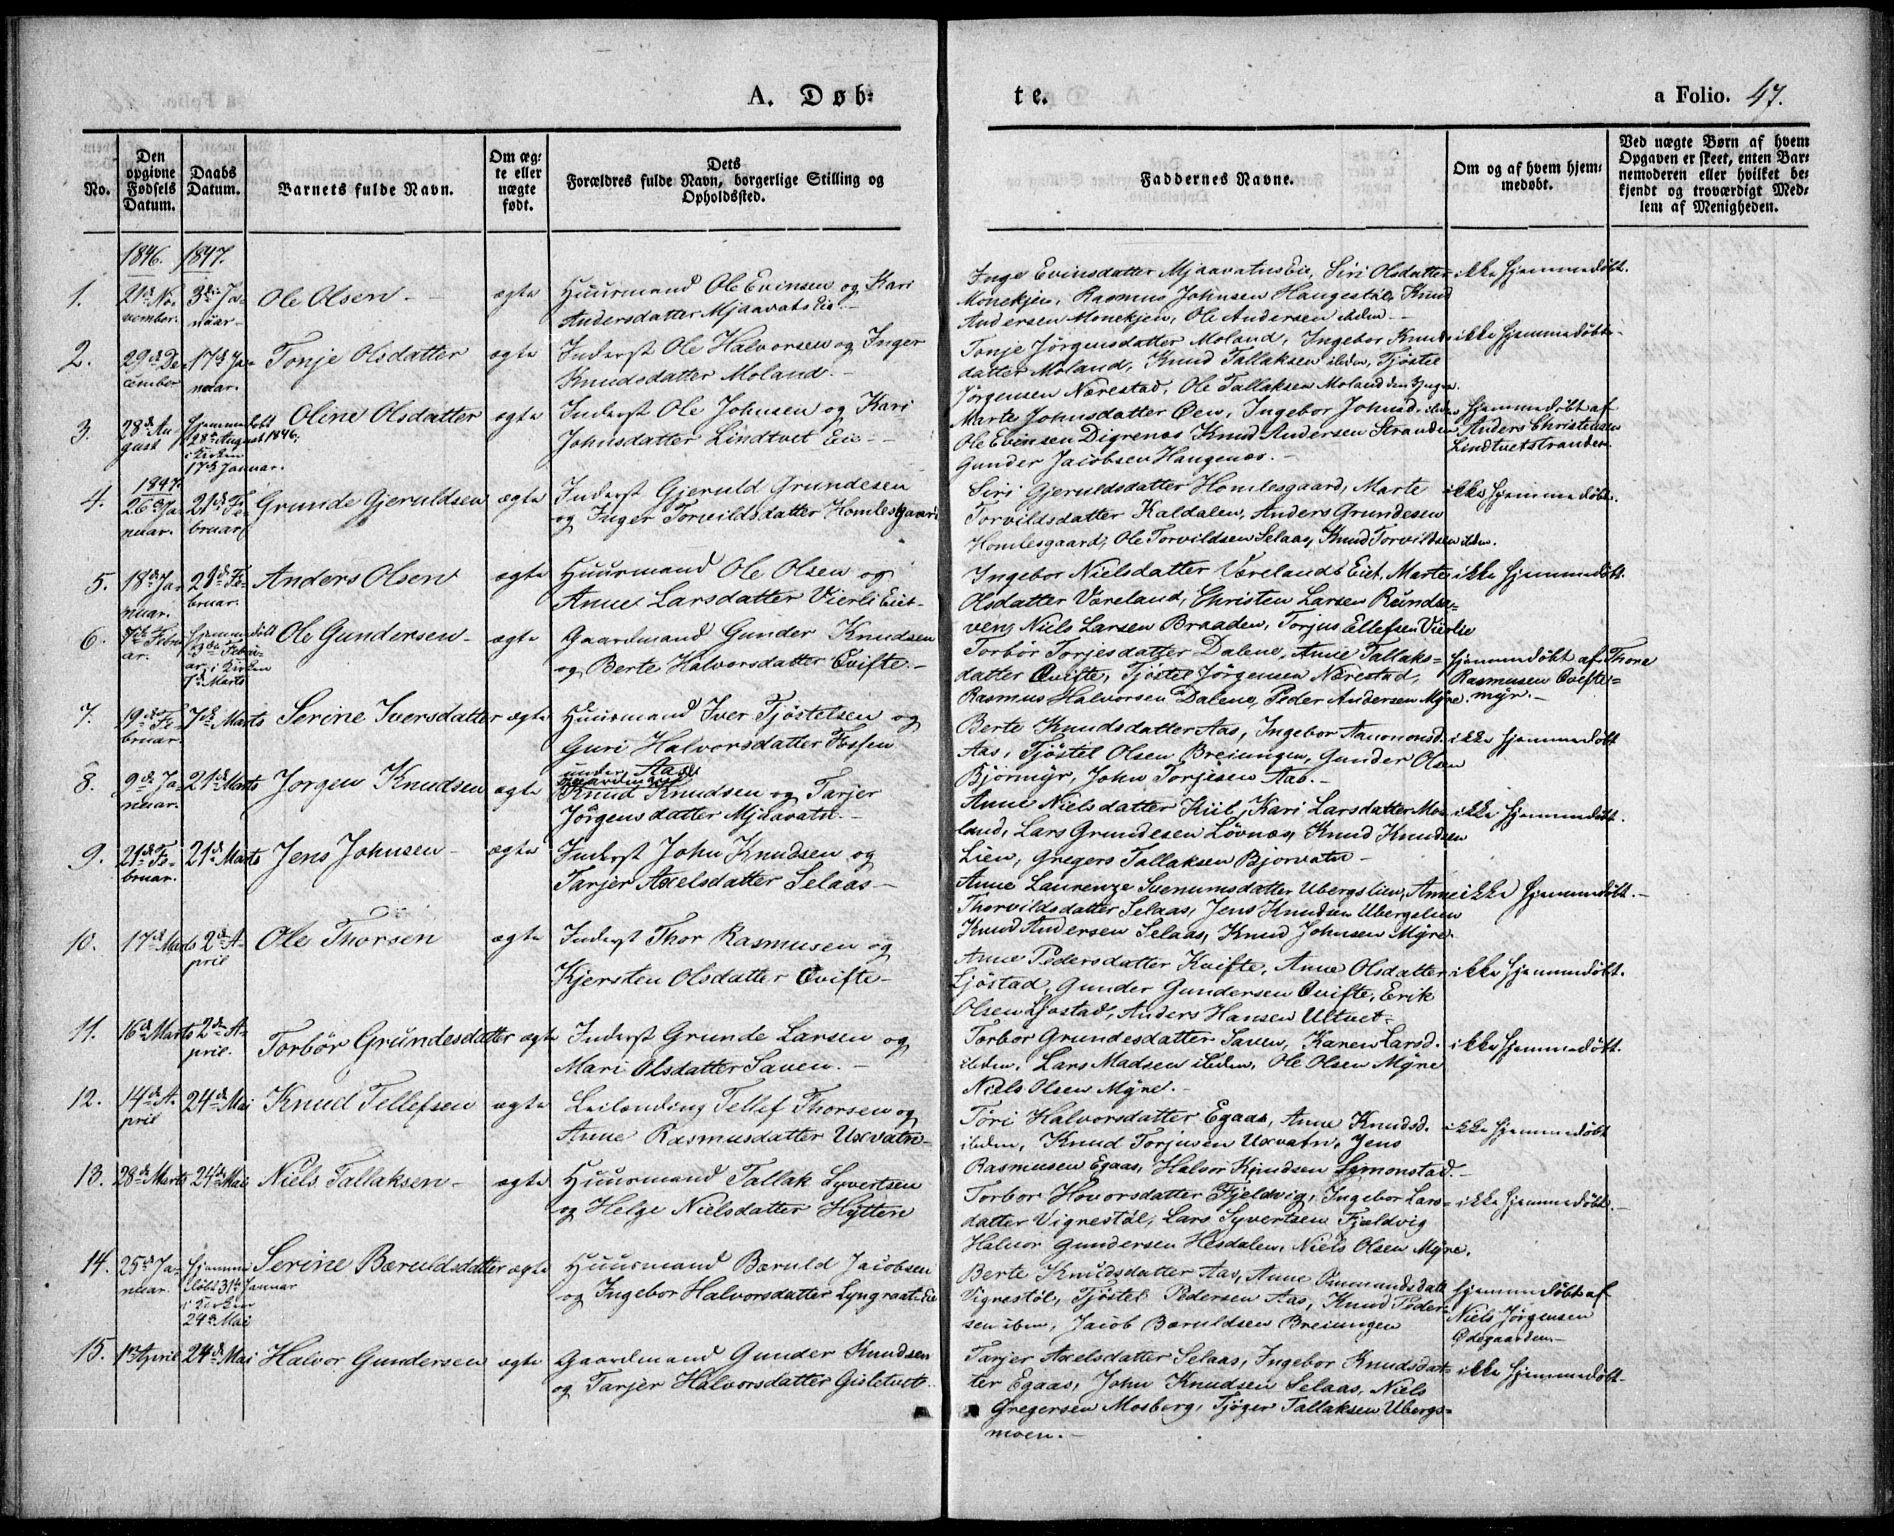 A. Døb-
te.
a Folio. 47.
No.
Den opgivne Fødsels Datum.
Daabs Datum.
Barnets fulde Navn.
Om ægte eller uægte født.
Dets Forældres fulde Navn, borgerlige Stilling og Opholdssted.
Faddernes Navne.
Om og af hvem hjemmedøbt.
Ved uægte Børn af hvem Opgaven er skeet, enten Barnemoderen eller hvilket bekjendt og troværdigt Medlem af Menigheden.
1846. 1847.
1. 21de November. 3die Januar Ole Olsen. ægte Huusmand Ole Evinsen og Kari
Andersdatter Mjaavatns Eie.
Inge Evinsdatter Mjaavatns Eie, Siri Olsdatter
Monekjen, Rasmus Johnsen Haugestøl, Knud
Andersen Monekjen, Ole Andersen ibiden
ikke hjemmedøbt.
2. 29de December 17de Januar. Tonje Olsdatter ægte Inderst Ole Halvorsen og Inger
Knudsdatter Moland.
Tonje Jørgensdatter Moland, Ingebor Knuds-
datter Moland, Knud Tallaksen ibiden, Tjøstel
Jørgensen Nærestad, Ole Tallaksen Moland den Yngre.
ikke hjemmedøbt
3. 28de August Hjemmedøbt 28de August 1846, i Kirken 17de Januar. Oline Olsdatter ægte Inderst Ole Johnsen og Kari
Johnsdatter Lindtvet Eie
Marte Johnsdatter Øen, Ingebor Johnsd. ibiden
Ole Evinsen Digrenes Knud Andersen Stranden
Gunder Jacobsen Haugenes.
Hjemmedøbt af
Anders Christensen
Lindtvetstranden
1847
4. 26de Januar. 21de Februar Grunde Gjeruldsen ægte Inderst Gjeruld Grundesen
og Inger Torvildsdatter Homlesgaard
Siri Gjeruldsdatter Homlesgaard, Marte
Torvildsdatter Kaldalen, Anders Grundesen
Homlesgaard, Ole Torvildsen Selaas, Knud Torvildsen ibiden.
ikke hjemmedøbt.
5. 18de Januar. 21de Februar. Anders Olsen ægte Huusmand Ole Olsen og
Anne Larsdatter Vierli Eiet
Ingebor Nielsdatter Værelands Eiet, Marte
Olsdatter Væreland, Christen Larsen Rundaa-
ven, Niels Larsen Braaden, Torjus Ellefsen Vierlie
ikke hjemmedøbt.
6. Februar. hjemmedøbt Februar i Kirken 7de Marts Ole Gundersen ægte Gaardmand Gunder Knudsen
og Berte Halvorsdatter Qvifte.
Torbør Torjesdatter Dalene, Anne Tallaks-
datter Qvifte, Tjøstel Jørgensen Nærestad,
Rasmus Halvorsen Dalene, Peder Andersen Myre.
Hjemmedøbt af Thore
Rasmusen Qvifte-
myr.
7. 19de Februar. 7de Marts Serine Iversdatter ægte Huusmand Iver Tjøstelsen og
Guri Halvorsdatter Fosfen
under Aas
Berte Knudsdatter Aas, Ingebor Aanonsd.
Aas, Tjøstel Olsen Breiungen, Gunder Olsen
Bjørmyr, John Torjesen Aas.
ikke hjemmedøbt
8. 9de Januar. 21de Marts Jørgen Knudsen ægte Knud Knudsen og Tarjer
Jørgensdatter Mjaavatn.
Anne Nielsdatter Kiil, Kari Larsdatter Mo-
land, Lars Grundesen Løvnes, Knud Knudsen
Lien, Gregers Tallaksen Bjorvatn
ikke hjemmedøbt.
9. 21de Februar. 21de Marts Jens Johnsen ægte Inderst John Knudsen og
Tarjer Axelsdatter Selaas
Anne Laurenze Svenumsdatter Ubergslien, Anne
Thorvildsdatter Selaas, Jens Knudsen Ubergslien
Knud Andersen Selaas, Knud Johnsen Myre.
ikke hjemmedøbt.
10. 17de Marts 2den April Ole Thorsen ægte Inderst Thor Rasmusen og
Kjersten Olsdatter Qvifte
Anne Pedersdatter Kvifte, Anne Olsdatter
Ljøstad, Gunder Gundersen Qvifte, Erik
Olsen Ljøstad, Anders Hansen Ultvet.
ikke hjemmedøbt.
11. 16de Marts 2den April. Torbør Grundesdatter ægte Inderst Grunde Larsen og
Mari Olsdatter Saven.
Torbor Grundesdatter Saven, Karen Larsd.
ibiden, Lars Madsen ibiden, Ole Olsen Myre
Niels Olsen Myre.
ikke hjemmedøbt.
12. 14de April 24de Mai Knud Tellefsen ægte Leilænding Tellef Thorsen og
Anne Rasmusdatter Uxvatn
Tøri Halvorsdatter Egaas, Anne Knudsd.
ibiden, Knud Torjusen Uxvatn, Jens
Rasmusen Egaas, Halvor Knudsen Lymonstad.
ikke hjemmedøbt
13. 28de Marts 24de Mai Niels Tallaksen ægte Huusmand Tallak Syvertsen
og Helge Nielsdatter Hytten
Torbor Hovorsdatter Fjeldvig, Ingebor Lars-
datter Vigrestøl, Lars Syvertsen Fjeldvig
Halvor Gundersen Hesdalen, Niels Olsen Myre.
ikke hjemmedøbt.
14. 25de Januar. Hjemmedøbt 31te Januar i Kirken 24de Mai Serine Bæruldsdatter ægte Huusmand Bæruld Jacobsen
og Ingebor Halvorsdatter Lyngraat Eie
Berte Knudsdatter Aas, Anne Osmundsdatt.
Vigrestøl, Tjøstel Pedersen Aas, Knud Peder-
sen ibm, Jacob Bæruldsen Breiungen
Hjemmedøbt af
Niels Jørgensen
Ødegaarden
15. 1ste April 24de Mai Halvor Gundersen ægte Gaardmand Gunder Knudsen
og Tarjer Halvorsdatter Gisletvet.
Tarjer Axelsdatter Selaas, Ingebor Knudsdat-
ter Egaas, John Knudsen Selaas, Niels
Gregersen Mosberg, Tjøger Tallaksen Ubergs-
moen.
ikke hjemmedøbt.